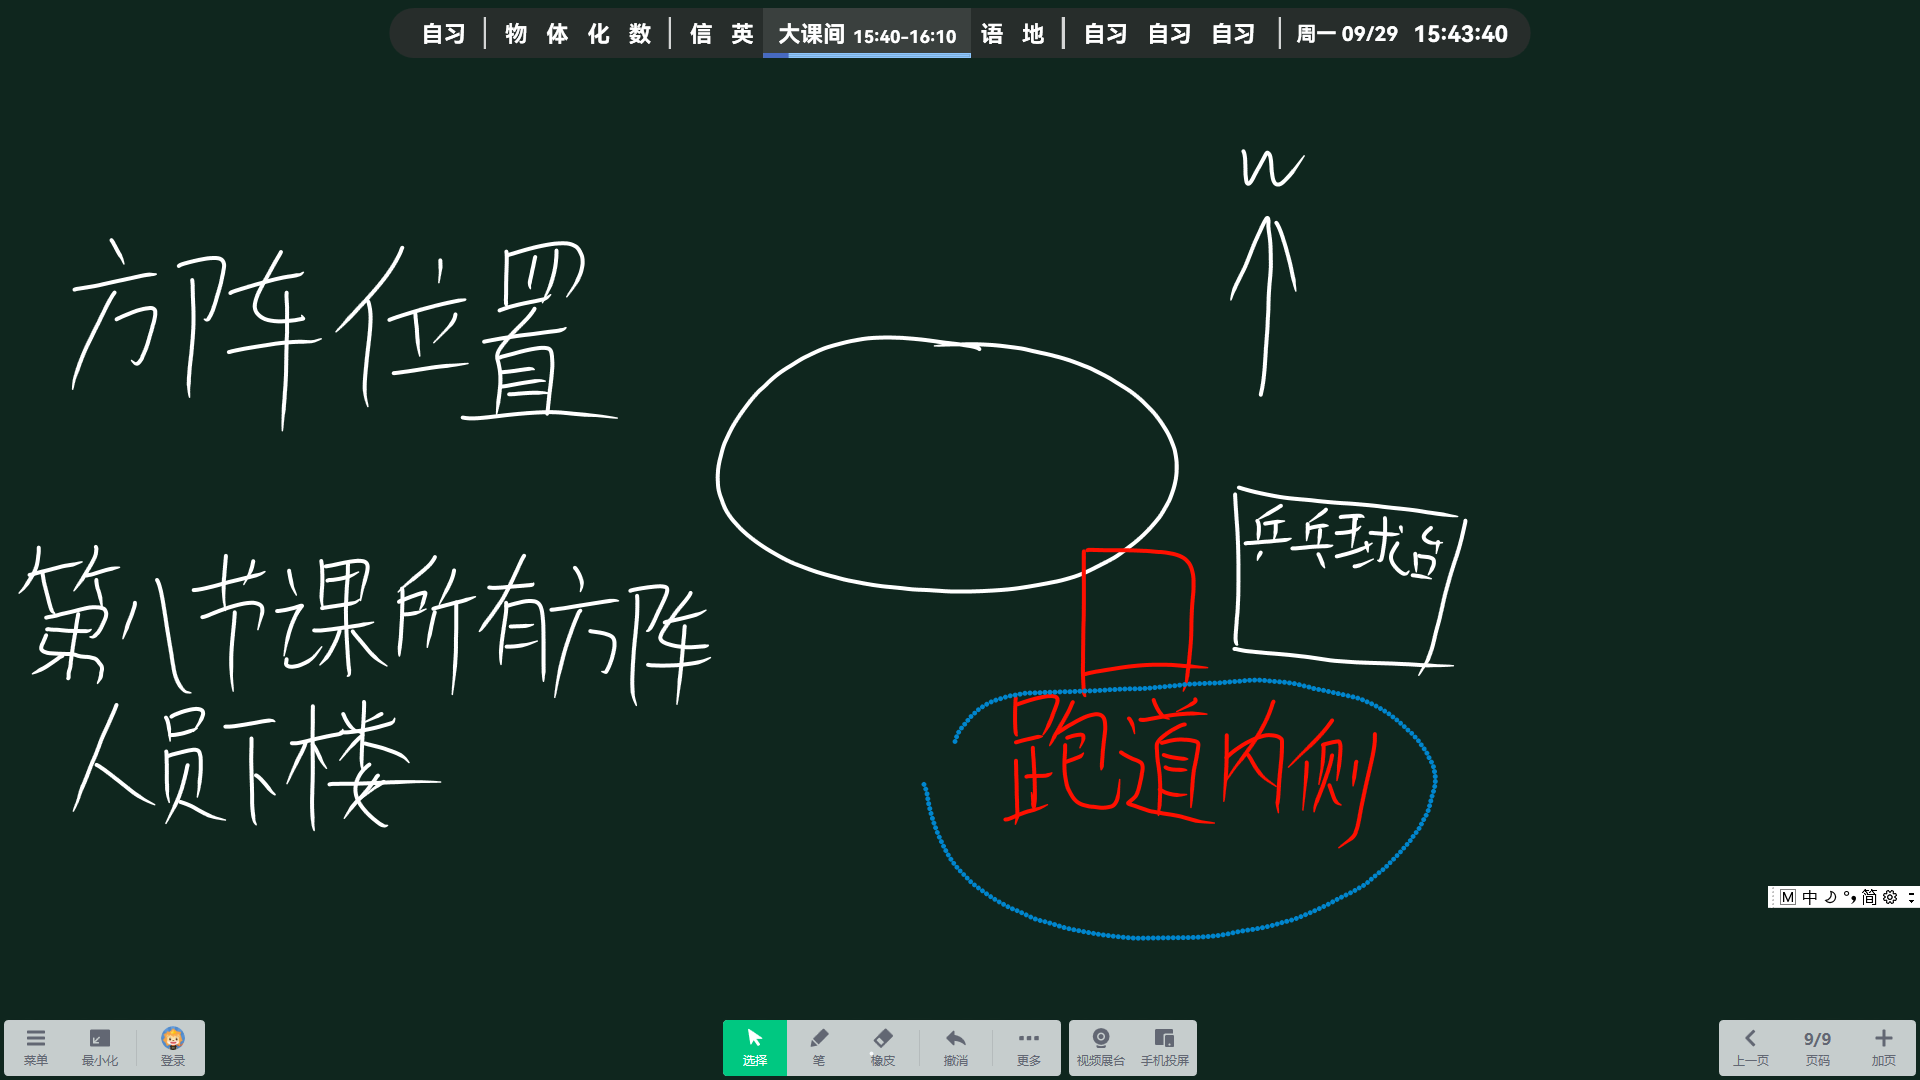 自习 | 物 体 化 数 | 信 英 大课间 15:40-16:10 语 地 | 自习 自习 自习 | 周一 09/29 15:43:40
方阵位置
第八节课所有方阵
人员下楼
乒乓球台
跑道内侧
M 中 简
菜单 最小化 登录 选择 笔 橡皮 撤消 更多 视频展台 手机投屏 上一页 9/9 页码 加页